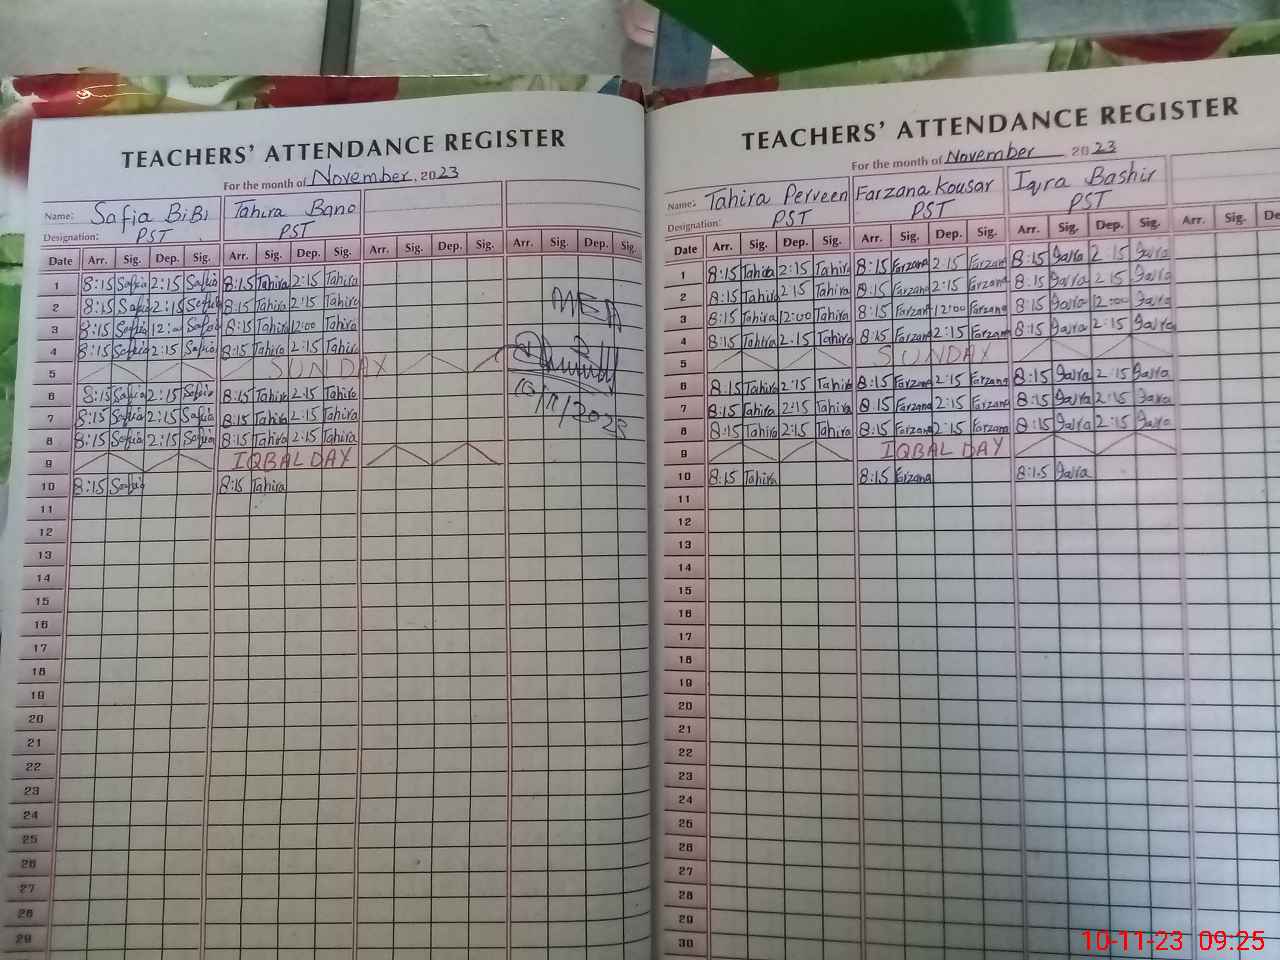 TEACHERS' ATTENDANCE REGISTER
For the month of November, 2023
Name: Safia BiBi Tahira Bano
Designation: PST PST
Date Arr. Sig. Dep. Sig. Arr. Sig. Dep. Sig. Arr. Sig. Dep. Sig. Arr. Sig. Dep. Sig.
1 8:15 Safia 2:15 Safia 8:15 Tahira 2:15 Tahira
2 8:15 Safia 2:15 Safia 8:15 Tahira 2:15 Tahira
MEA
3 8:15 Safia 12:00 Safia 8:15 Tahira 12:00 Tahira
4 8:15 Safia 2:15 Safia 8:15 Tahira 2:15 Tahira
5 SUNDAY
6 8:15 Safia 2:15 Safia 8:15 Tahira 2:15 Tahira
10/11/2023
7 8:15 Safia 2:15 Safia 8:15 Tahira 2:15 Tahira
8 8:15 Safia 2:15 Safia 8:15 Tahira 2:15 Tahira
9 IQBAL DAY
10 8:15 Safia 8:15 Tahira
11
12
13
14
15
16
17
18
19
20
21
22
23
24
25
26
27
28
29
TEACHERS' ATTENDANCE REGISTER
For the month of November 2023
Name: Tahira Perveen Farzana Kousar Iqra Bashir
Designation: PST PST PST
Date Arr. Sig. Dep. Sig. Arr. Sig. Dep. Sig. Arr. Sig. Dep. Sig. Arr. Sig. De
1 8:15 Tahira 2:15 Tahira 8:15 Farzana 2:15 Farzana 8:15 Iqra 2:15 Iqra
2 8:15 Tahira 2:15 Tahira 8:15 Farzana 2:15 Farzana 8:15 Iqra 2:15 Iqra
3 8:15 Tahira 12:00 Tahira 8:15 Farzana 12:00 Farzana 8:15 Iqra 12:00 Iqra
4 8:15 Tahira 2:15 Tahira 8:15 Farzana 2:15 Farzana 8:15 Iqra 2:15 Iqra
5 SUNDAY
6 8:15 Tahira 2:15 Tahira 8:15 Farzana 2:15 Farzana 8:15 Iqra 2:15 Iqra
7 8:15 Tahira 2:15 Tahira 8:15 Farzana 2:15 Farzana 8:15 Iqra 2:15 Iqra
8 8:15 Tahira 2:15 Tahira 8:15 Farzana 2:15 Farzana 8:15 Iqra 2:15 Iqra
9 IQBAL DAY
10 8:15 Tahira 8:15 Farzana 8:15 Iqra
11
12
13
14
15
16
17
18
19
20
21
22
23
24
25
26
27
28
29
30
10-11-23 09:25